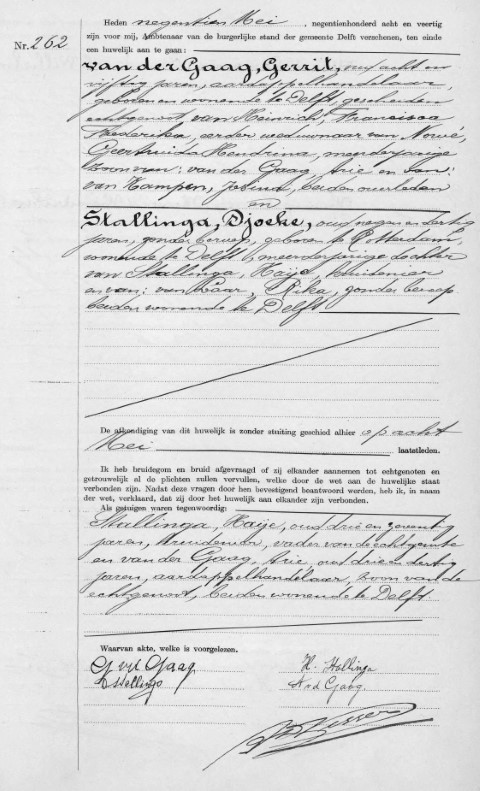 Heden negentien Mei, negentienhonderd acht en veertig
zijn voor mij, Ambtenaar van de burgerlijke stand der gemeente Delft verschenen, ten einde
Nr. 262
een huwelijk aan te gaan:
van der Gaag, Gerrit, oud acht en
vijftig jaren, aardappelhandelaar,
geboren en wonende te Delft, gescheiden
echtgenoot van Heinrich, Francisca
Frederika, eerder weduwnaar van Nowé,
Geertruida Hendrina, meerderjarige
zoon van: van der Gaag, Arie en van:
van Kampen, Jobina, beiden overleden
en
Stallinga, Djoeke, oud negen en dertig
jaren, zonder beroep, geboren te Rotterdam,
wonende te Delft, meerderjarige dochter
van Stallinga, Haije, kruidenier
en van: van Laar, Rika, zonder beroep
beiden wonende te Delft
De afkondiging van dit huwelijk is zonder stuiting geschied alhier op acht
Mei laatstleden.
Ik heb bruidegom en bruid afgevraagd of zij elkander aannemen tot echtgenoten en
getrouwelijk al de plichten zullen vervullen, welke door de wet aan de huwelijke staat
verbonden zijn. Nadat deze vragen door hen bevestigend beantwoord werden, heb ik, in naam
der wet, verklaard, dat zij door het huwelijk aan elkander zijn verbonden.
Als getuigen waren tegenwoordig:
Stallinga, Haije, oud drie en zeventig
jaren, kruidenier, vader van de echtgenote
en van der Gaag, Arie, oud drie en dertig
jaren, aardappelhandelaar, zoon van de
echtgenoot, beiden wonende te Delft
Waarvan akte, welke is voorgelezen.
G vd Gaag
H. Stallinga
D Stallinga
A v d Gaag.